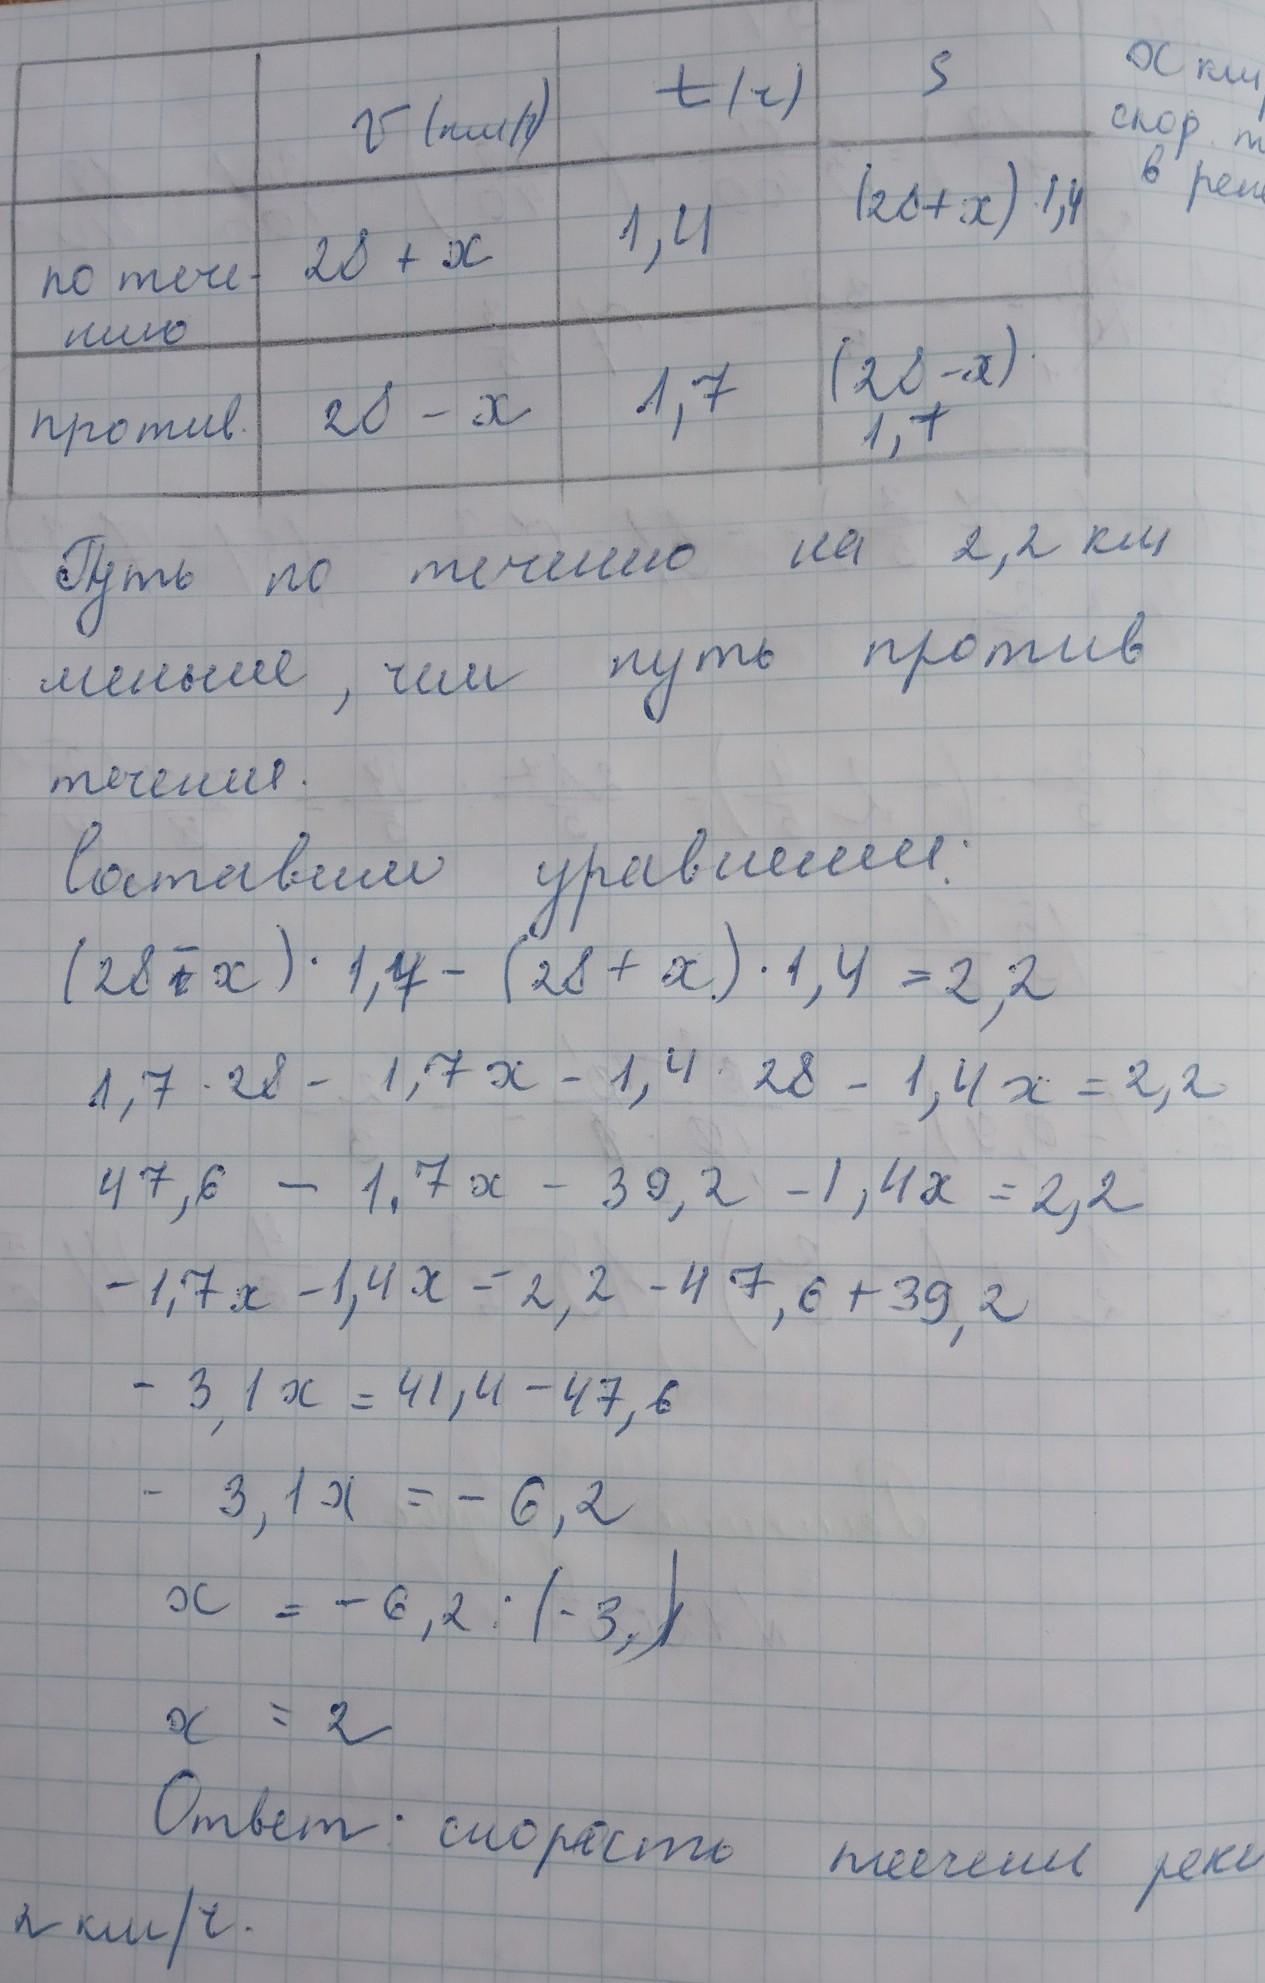 v (км/ч) t (ч) S
x км/
скор. т
в реке
по тече-
нию 28 + x 1,4 (28 + x) · 1,4
против. 28 - x 1,7 (28 - x) ·
1,7
Путь по течению на 2,2 км
меньше, чем путь против
течения.
Составим уравнение:
(28 - x) · 1,7 - (28 + x) · 1,4 = 2,2
1,7 · 28 - 1,7x - 1,4 · 28 - 1,4x = 2,2
47,6 - 1,7x - 39,2 - 1,4x = 2,2
-1,7x - 1,4x = 2,2 - 47,6 + 39,2
- 3,1x = 41,4 - 47,6
- 3,1x = - 6,2
x = - 6,2 : (- 3,1)
x = 2
Ответ: скорость течения реки
2 км/ч.